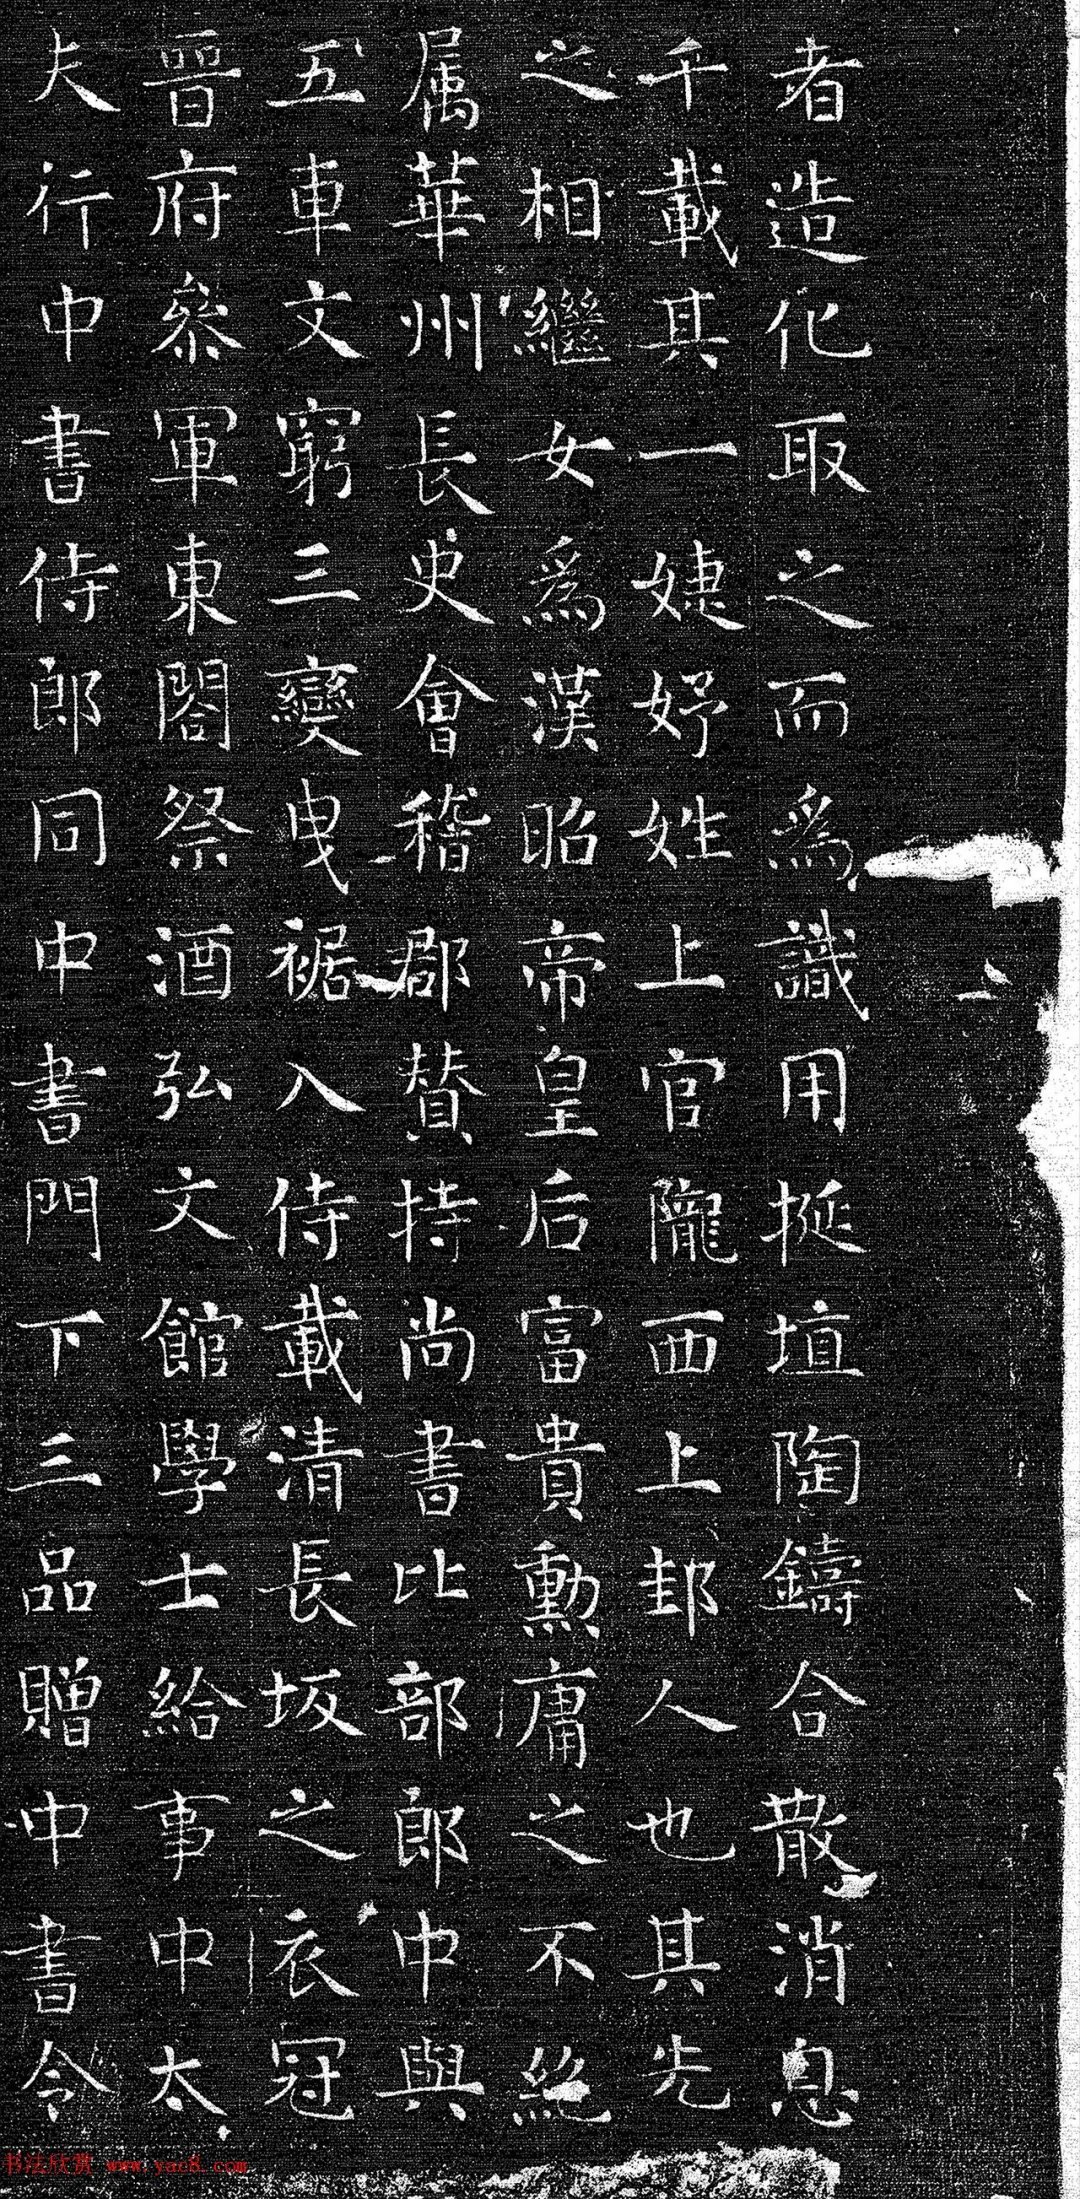 者造化取之而為識用挻埴陶鑄合散消息
千載其一婕妤姓上官隴西上邽人也其先
之相繼女為漢昭帝皇后富貴勳庸之不絕
属華州長史會稽郡賛持尚書比部郎中與
五車文窮三變曳裾入侍載清長坂之衣冠
晉府參軍東閤祭酒弘文館學士給事中太
夫行中書侍郎同中書門下三品贈中書令
书法欣赏 www.yac8.com